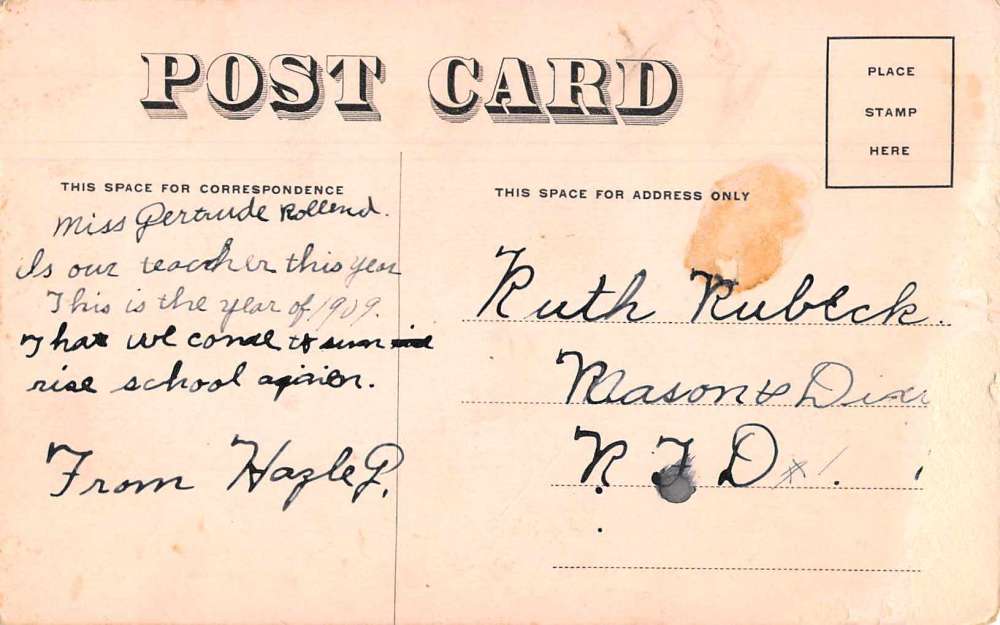 POST CARD
PLACE
STAMP
HERE
THIS SPACE FOR CORRESPONDENCE
Miss Gertrude Rollend.
Is our teacher this year
This is the year of 1909.
That we come to sun
rise school again.
From Hazle P.
THIS SPACE FOR ADDRESS ONLY
Ruth Rubeck.
Mason & Dixe
R. F D #1.